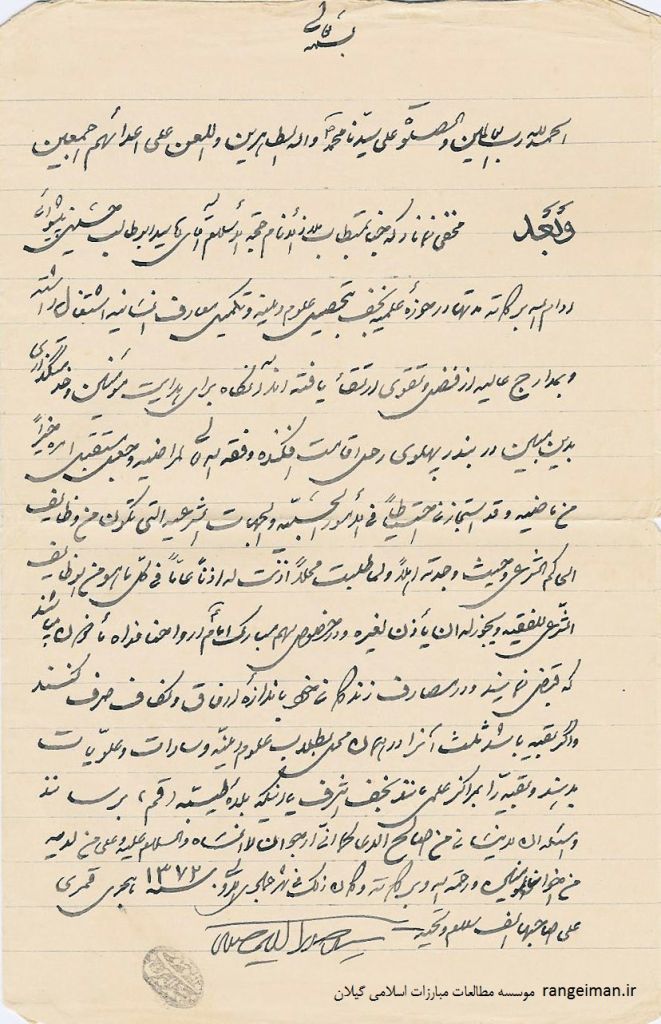 بسمه تعالی
الحمد لله رب العالمین والصلوة علی سیدنا محمد وآله الطاهرین واللعن علی اعدائهم اجمعین
وبعد مخفی نماند که جناب مستطاب ملاذ الانام حجة الاسلام آقای آقا سید ابوطالب حسینی پیشوائی
ادام الله برکاته مدتها در حوزه علمیه نجف بتحصیل علوم دینیه و تکمیل معارف انسانیه اشتغال داشته
و بمدارج عالیه از فضل و تقوی ارتقاء یافته اند آنگاه برای هدایت مؤمنین و خدمتگذاری
بدین مبین در بندر پهلوی رحل اقامت افکنده وفقه الله تعالی لمراضیه وجعل مستقبل امره خیراً
من ماضیه وقد استجازنا احتیاطاً فی الأمور الحسبیه والجهات الشرعیه التی تکون من وظائف
الحاکم الشرعی وحیث وجدته اهلاً ولما طلبت محلاً اذنت له اذناً عاماً فی کل ما هو من الوظائف
الشرعی للفقیه ویجوز له ان یأذن لغیره و در خصوص سهم مبارک امام ارواحنا فداه مأذون میباشند
که قبض نمایند و در مصارف زندگانی خود باندازه ارفاق و کفاف صرف کنند
و اگر بقیه باشد ثلث آنرا در همان محل بطلاب علوم دینیه و سادات و علویات
بدهند و بقیه را بمراکز علمی مانند نجف اشرف یا اینکه بلده طیبه (قم) برسانند
واسئله ان لا ینسانی من صالح الدعا کما انی ارجو ان لا انساه والسلام علیه وعلی من لدیه
من اخواننا المؤمنین ورحمة الله وبرکاته وکان ذلک شهر جمادی سنه ۱۳۷۲ هجری قمری
علی صاحبها الف سلام وتحیة
rangeiman.ir موسسه مطالعات مبارزات اسلامی گیلان